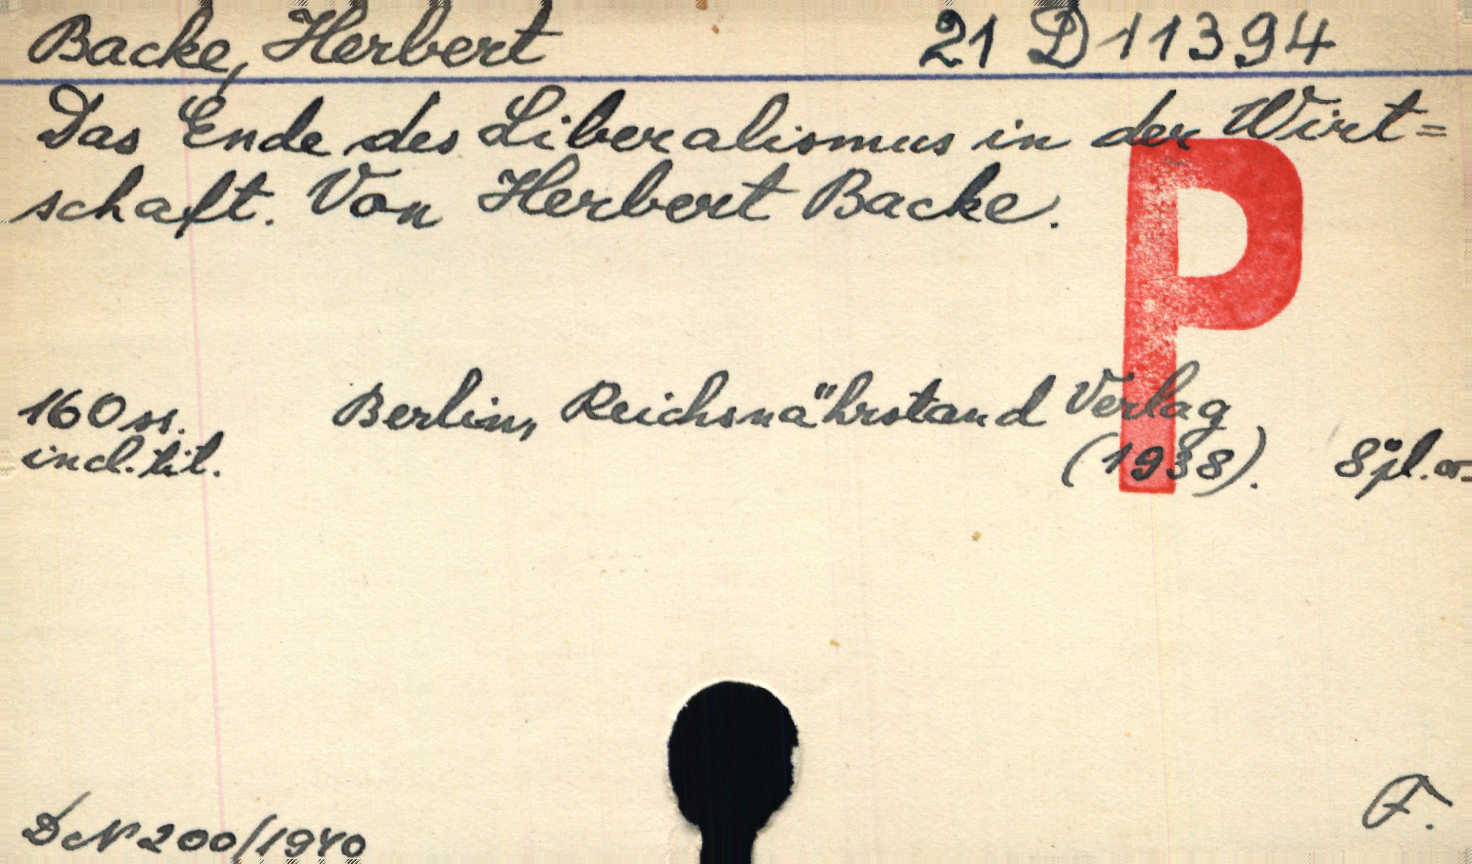 Backe, Herbert 21 D 11394
Das Ende des Liberalismus in der Wirt=
schaft. Von Herbert Backe.
P
160 ss. Berlin, Reichsnährstand Verlag
incl. tit. (1938). 8
DN 200/1940 F.